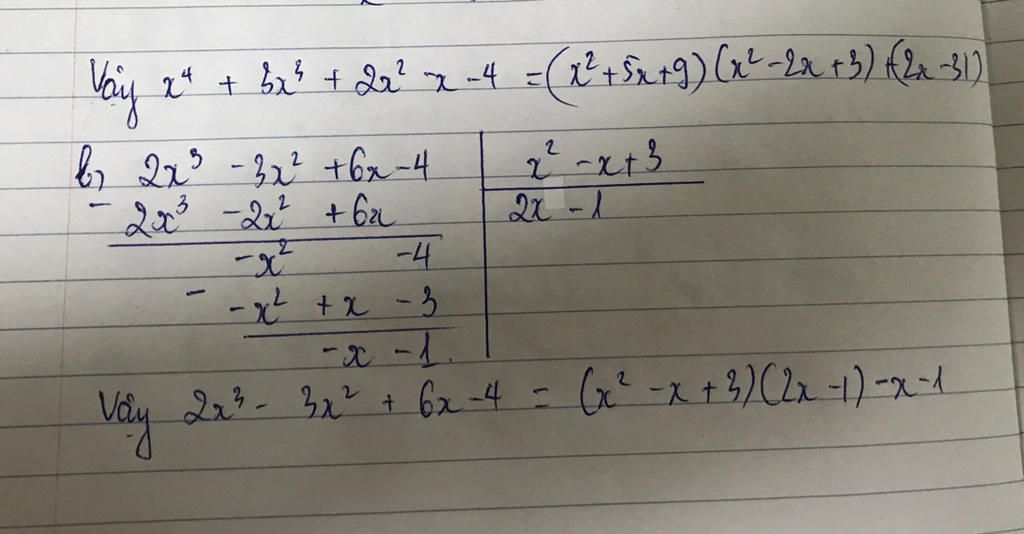 Vậy x⁴ + 3x³ + 2x² - x - 4 = (x² + 5x + 9)(x² - 2x + 3) + (2x - 31)
b, 2x³ - 3x² + 6x - 4 | x² - x + 3
- 2x³ - 2x² + 6x | 2x - 1
-x² - 4
- -x² + x - 3
-x - 1.
Vậy 2x³ - 3x² + 6x - 4 = (x² - x + 3)(2x - 1) - x - 1